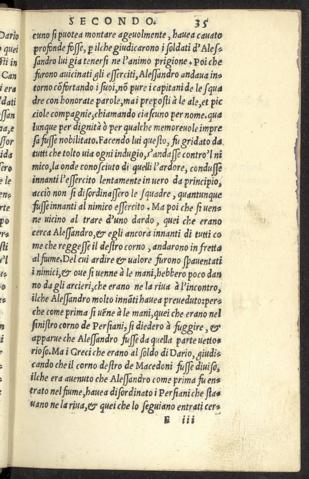 SECONDO. 35
cuno si puotea montare ageuolmente, hauea cauato
profonde fosse, p ilche giudicarono i soldati d'Ales=
sandro lui gia tenersi ne l'animo prigione. Poi che
furono auicinati gli esserciti, Alessandro andaua in=
torno cõfortando i suoi, nõ pure i capitani de le squa
dre con honorate parole, mai preposti à le ale, et pic
ciole compagnie, chiamando ciascuno per nome. qua
lunque per dignità ò per qualche memoreuole impre
sa fusse nobilitato. Facendo lui questo, fu gridato da
tutti che tolto uia ogni indugio, s'andasse contro'l ni
mico, la onde conosciuto di quelli l'ardore, condusse
innanti l'essercito lentamente in uero da principio,
acciò non si disordinassero le squadre, quantunque
fusse innanti al nimico essercito. Ma poi che si uen=
ne uicino al trare d'uno dardo, quei che erano
cerca Alessandro, & egli ancora innanti di tutti co
me che reggesse il destro corno, andarono in fretta
al fiume. Del cui ardire & ualore furono spauentati
i nimici, & oue si uenne à le mani, hebbero poco dan
no da gli arcieri, che erano ne la riua à l'incontro,
ilche Alessandro molto innãti hauea preueduto: per=
che come prima si uẽne à le mani, quei che erano nel
sinistro corno de Persiani, si diedero à fuggire, &
apparue che Alessandro fusse da quella parte uetto=
rioso. Ma i Greci che erano al soldo di Dario, giudi=
cando che il corno destro de Macedoni fusse diuiso,
ilche era auenuto che Alessandro come prima fu en=
trato nel fiume, hauea disordinato i Persiani che sta=
uano ne la riua, & quei che lo seguiano entrati cer=
E iii
Dario
quei
Can
i era
ldati
sse
e le